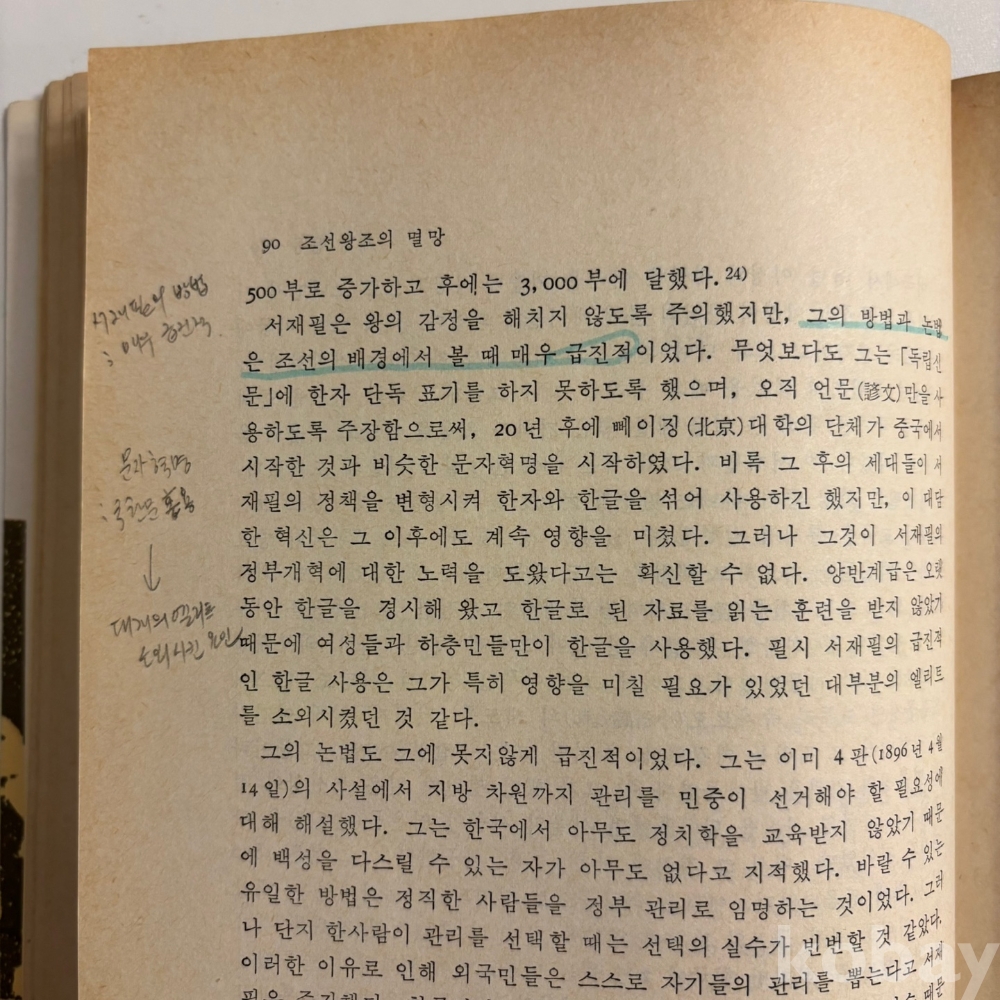 90 조선왕조의 멸망
500부로 증가하고 후에는 3,000부에 달했다.24)
서재필은 왕의 감정을 해치지 않도록 주의했지만, 그의 방법과 논법
은 조선의 배경에서 볼 때 매우 급진적이었다. 무엇보다도 그는 「독립신
문」에 한자 단독 표기를 하지 못하도록 했으며, 오직 언문(諺文)만을 사
용하도록 주장함으로써, 20년 후에 뻬이징(北京)대학의 단체가 중국에서
시작한 것과 비슷한 문자혁명을 시작하였다. 비록 그 후의 세대들이 서
재필의 정책을 변형시켜 한자와 한글을 섞어 사용하긴 했지만, 이 대담
한 혁신은 그 이후에도 계속 영향을 미쳤다. 그러나 그것이 서재필의
정부개혁에 대한 노력을 도왔다고는 확신할 수 없다. 양반계급은 오랫
동안 한글을 경시해 왔고 한글로 된 자료를 읽는 훈련을 받지 않았기
때문에 여성들과 하층민들만이 한글을 사용했다. 필시 서재필의 급진적
인 한글 사용은 그가 특히 영향을 미칠 필요가 있었던 대부분의 엘리트
를 소외시켰던 것 같다.
그의 논법도 그에 못지않게 급진적이었다. 그는 이미 4판(1896년 4월
14일)의 사설에서 지방 차원까지 관리를 민중이 선거해야 할 필요성에
대해 해설했다. 그는 한국에서 아무도 정치학을 교육받지 않았기 때문
에 백성을 다스릴 수 있는 자가 아무도 없다고 지적했다. 바랄 수 있는
유일한 방법은 정직한 사람들을 정부 관리로 임명하는 것이었다. 그러
나 단지 한사람이 관리를 선택할 때는 선택의 실수가 빈번할 것 같았다.
이러한 이유로 인해 외국민들은 스스로 자기들의 관리를 뽑는다고 서재
서재필의 방법
: 매우 급진적.
문자혁명
: 국한문 혼용
↓
대개의 엘리트
소외시킨 요인